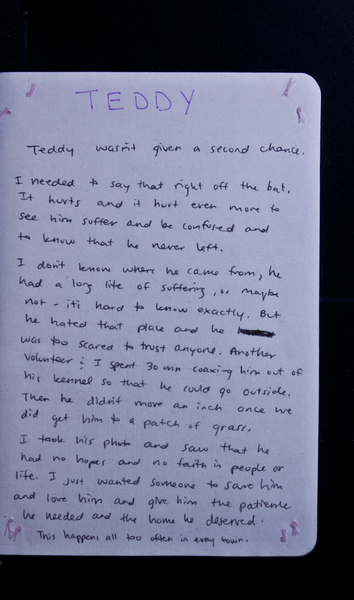 TEDDY
Teddy wasn't given a second chance.
I needed to say that right off the bat.
It hurts and it hurt even more to
see him suffer and be confused and
to know that he never left.
I don't know where he came from, he
had a long life of suffering, or maybe
not - it's hard to know exactly. But
he hated that place and he
was too scared to trust anyone. Another
volunteer & I spent 30 min coaxing him out of
his kennel so that he could go outside.
Then he didn't move an inch once we
did get him to a patch of grass.
I took his photo and saw that he
had no hopes and no faith in people or
life. I just wanted someone to save him
and love him and give him the patience
he needed and the home he deserved.
This happens all too often in every town.